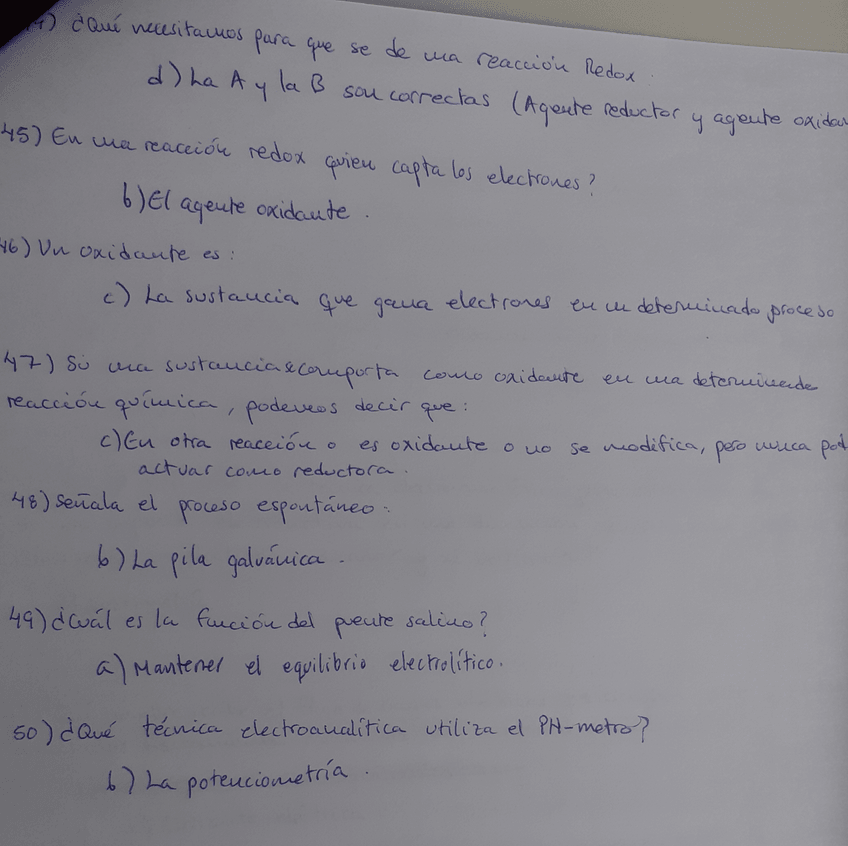 4) ¿Qué necesitamos para que se de una reacción Redox.
d) La A y la B son correctas (Agente reductor y agente oxidan
45) En una reacción redox quien capta los electrones?
b) El agente oxidante.
46) Un oxidante es:
c) La sustancia que gana electrones en un determinado proceso
47) Si una sustancia se comporta como oxidante en una determinada
reacción química, podemos decir que:
c) En otra reacción o es oxidante o no se modifica, pero nunca pod
actuar como reductora.
48) Señala el proceso espontáneo:
b) La pila galvánica.
49) ¿Cuál es la función del puente salino?
a) Mantener el equilibrio electrolítico.
50) ¿Qué técnica electroanalítica utiliza el PH-metro?
b) La potenciometría.